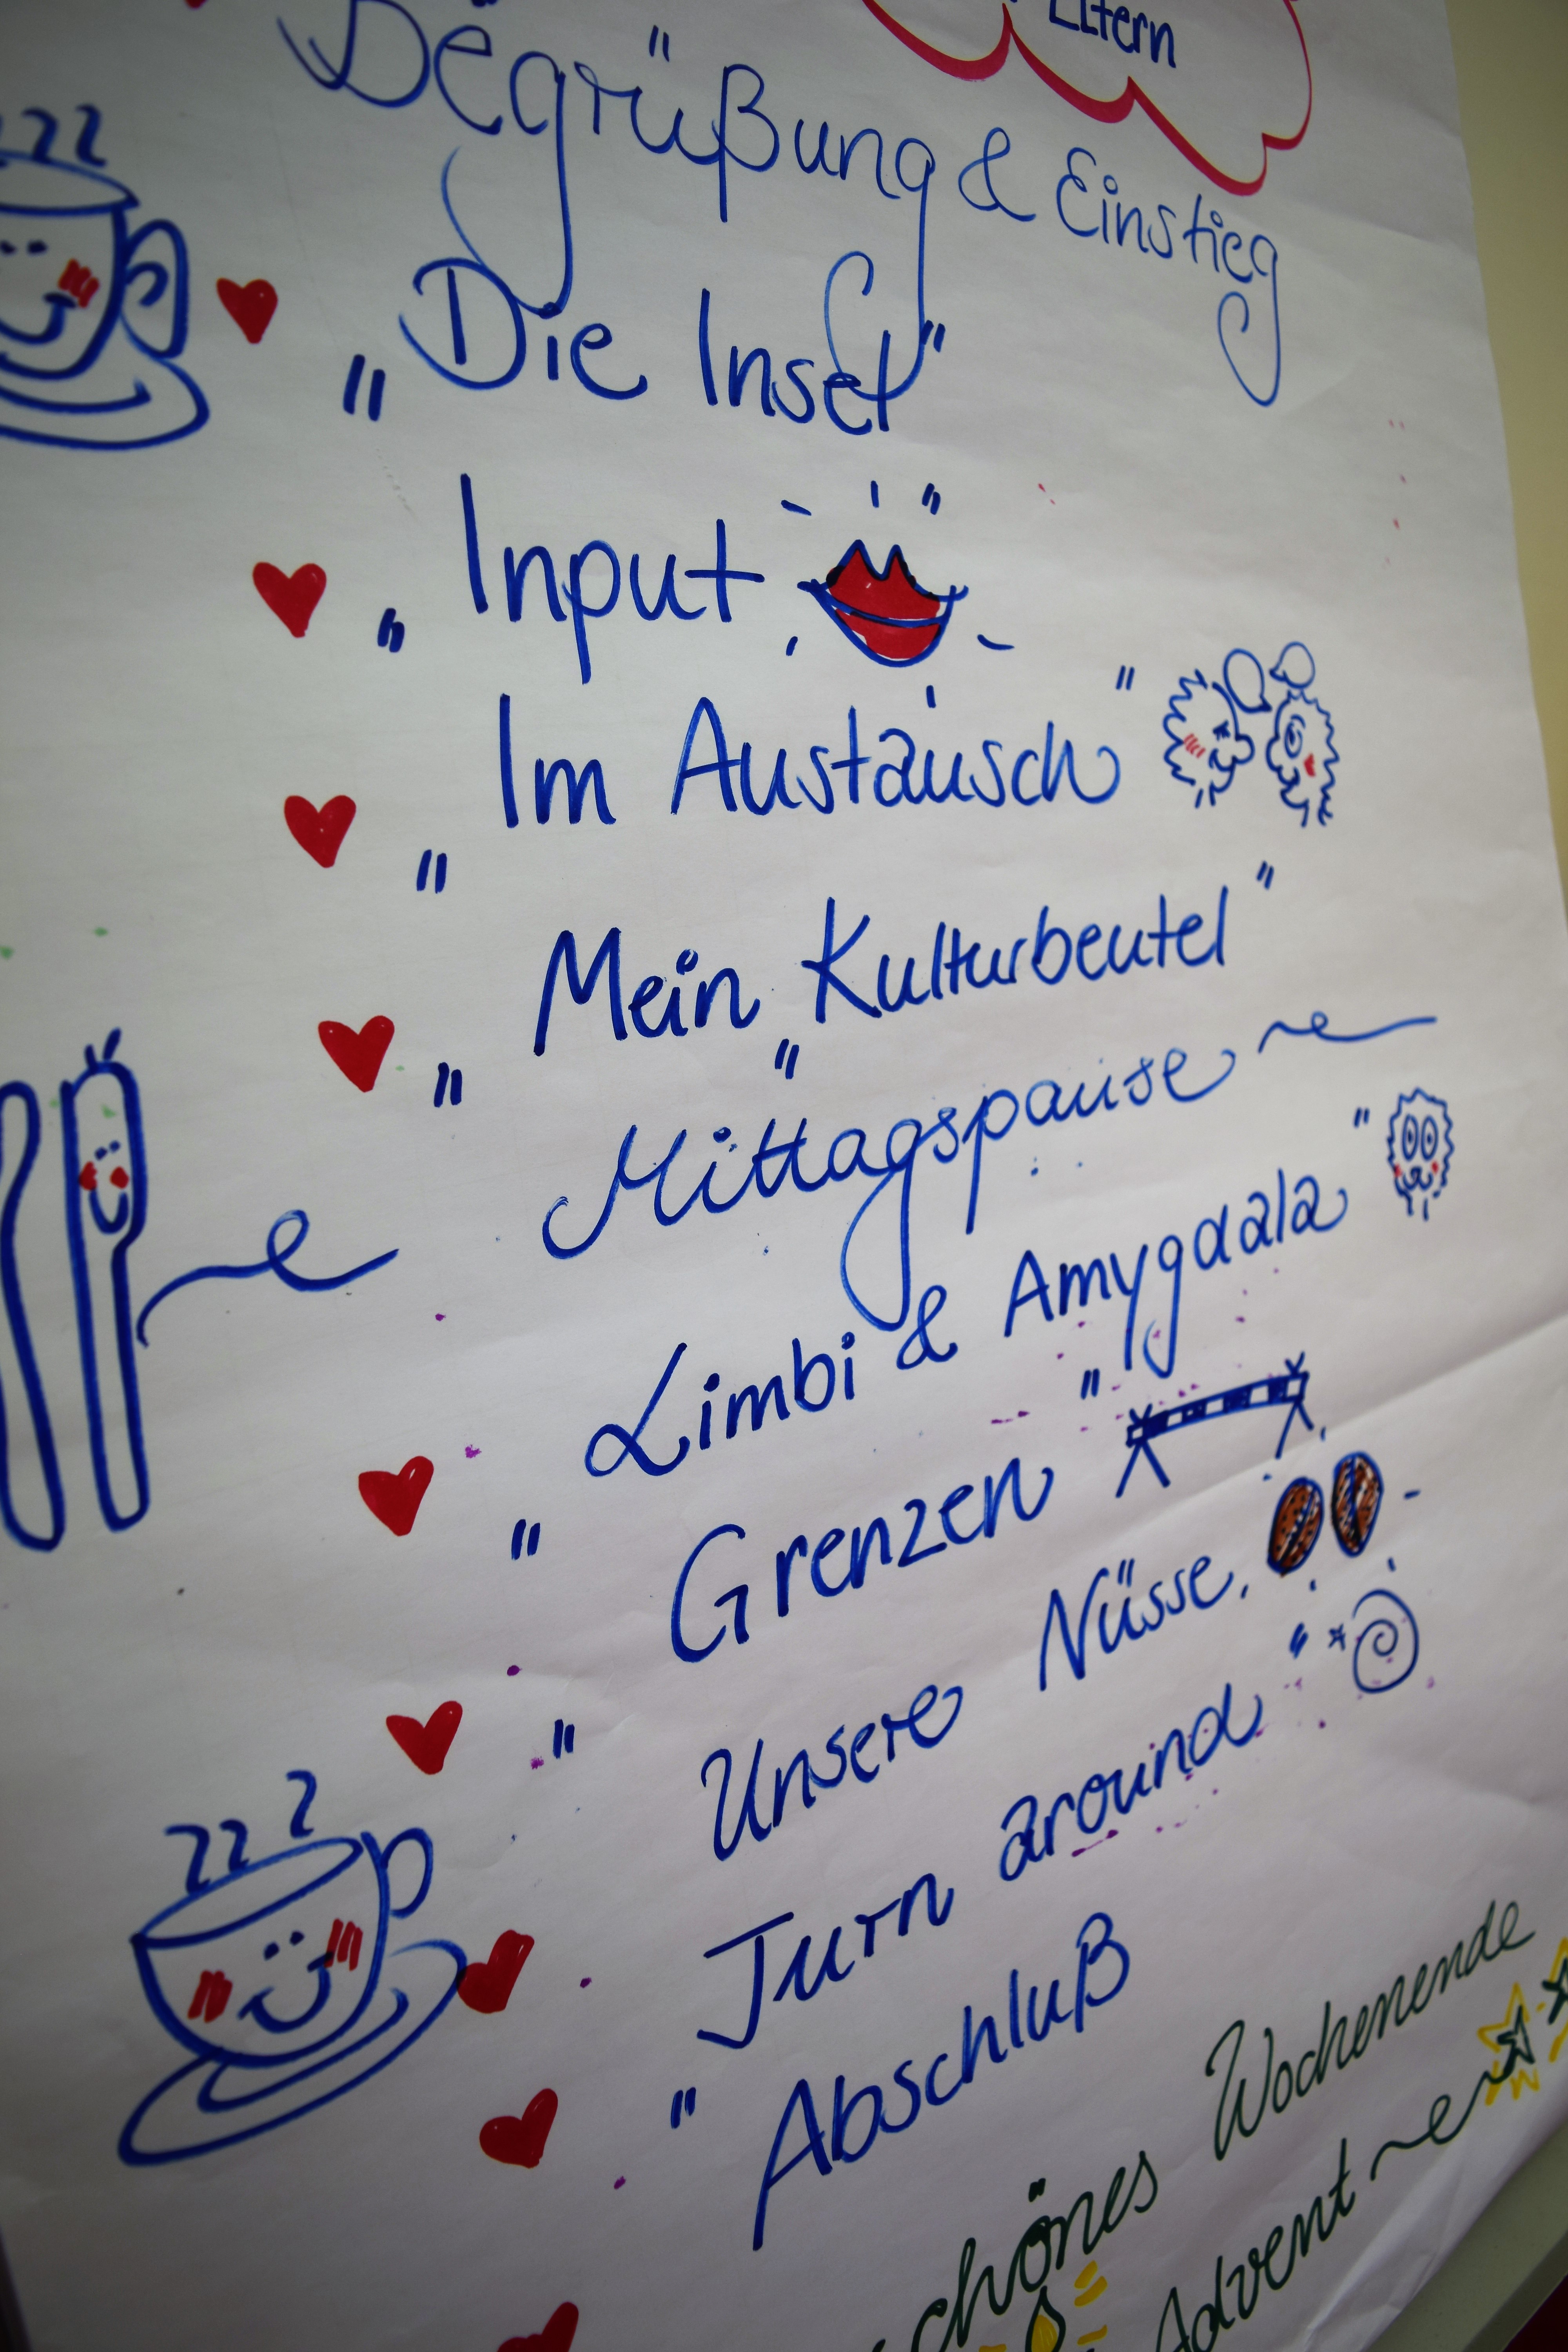 Eltern
Begrüßung & Einstieg
„Die Insel"
„Input"
„Im Austausch"
„Mein Kulturbeutel"
Mittagspause
„Limbi & Amygdala"
„Grenzen"
Unsere Nüsse
„Turn around"
Abschluß
schönes Wochenende
Advent